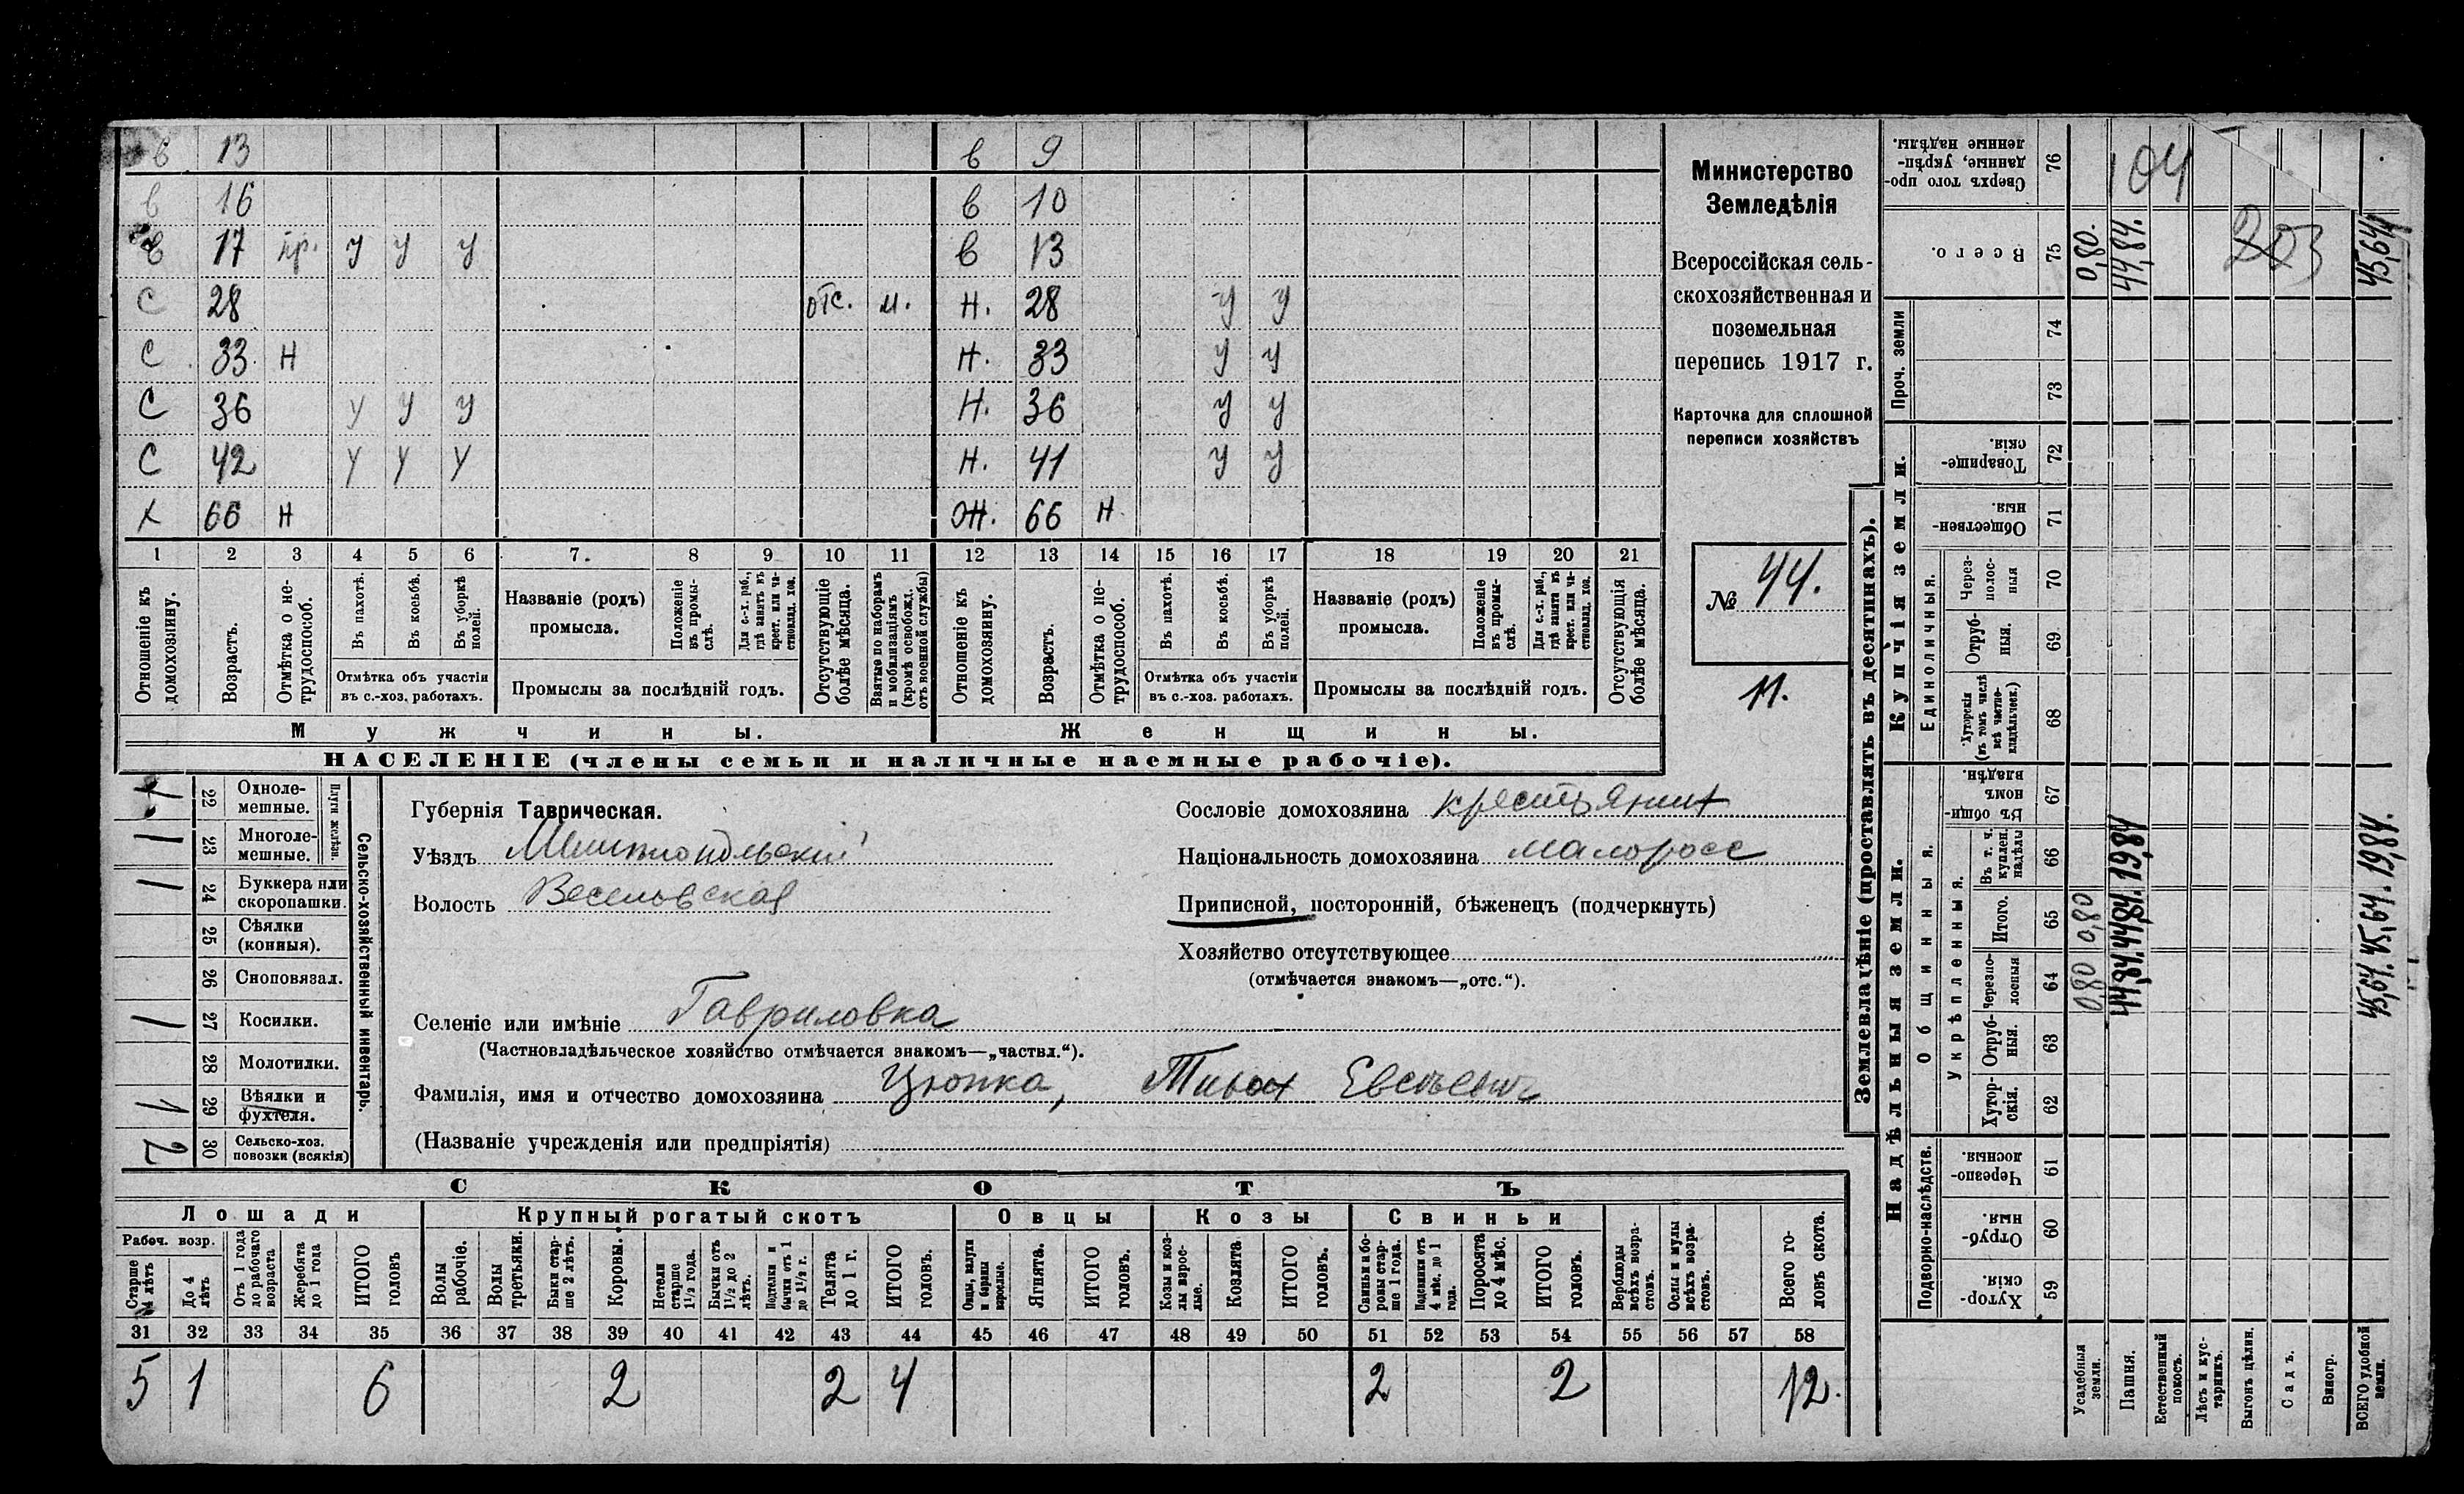 в 13 в 9
в 16 в 10
в 17 пр. у у у в 13
с 28 отс. м. н. 28 у у
с 33 н н. 33 у у
с 36 у у у н. 36 у у
с 42 у у у н. 41 у у
х 66 н ж. 66 н
1 2 3 4 5 6 7. 8 9 10 11 12 13 14 15 16 17 18 19 20 21
Отношеніе къ домохозяину.
Возрастъ.
Отмѣтка о не-
трудоспособ.
Въ пахотѣ.
Въ косьбѣ.
Въ уборкѣ
полей.
Отмѣтка объ участіи
въ с.-хоз. работахъ.
Названіе (родъ)
промысла.
Положеніе
въ промы-
слѣ.
Для с.-х. раб.,
гдѣ занятъ въ
крест. или ча-
стновлад. хоз.
Промыслы за послѣдній годъ.
Отсутствующіе
болѣе мѣсяца.
Взятые по наборамъ
и мобилизаціямъ
(кромѣ освобожд.
отъ военной службы)
Отношеніе къ
домохозяину.
Возрастъ.
Отмѣтка о не-
трудоспособ.
Въ пахотѣ.
Въ косьбѣ.
Въ уборкѣ
полей.
Отмѣтка объ участіи
въ с.-хоз. работахъ.
Названіе (родъ)
промысла.
Положеніе
въ промы-
слѣ.
Для с.-х. раб.,
гдѣ занята въ
крест. или ча-
стновлад. хоз.
Промыслы за послѣдній годъ.
Отсутствующія
болѣе мѣсяца.
Мужчины.
Женщины.
НАСЕЛЕНІЕ (члены семьи и наличные наемные рабочіе).
Министерство
Земледѣлія
Всероссійская сель-
скохозяйственная и
поземельная
перепись 1917 г.
Карточка для сплошной
переписи хозяйствъ
№ 44.
11.
Сельско-хозяйственный инвентарь.
Плуги желѣзн.
22 Однолемешные.
1 23 Многолемешные.
1 24 Буккера или скоропашки.
25 Сѣялки (конныя).
26 Сноповязал.
1 27 Косилки.
28 Молотилки.
1 29 Вѣялки и фухтеля.
2 30 Сельско-хоз. повозки (всякія)
Губернія Таврическая.
Уѣздъ Мелитопольскій
Волость Веселовская
Селеніе или имѣніе Гавриловка
(Частновладѣльческое хозяйство отмѣчается знакомъ—„частвл.“).
Сословіе домохозяина крестьянин
Національность домохозяина малоросс
Приписной, посторонній, бѣженецъ (подчеркнуть)
Хозяйство отсутствующее
(отмѣчается знакомъ—„отс.“).
Фамилія, имя и отчество домохозяина Цюпка, Тихон Евсеевич
(Названіе учрежденія или предпріятія)
СКОТЪ
Лошади Крупный рогатый скотъ Овцы Козы Свиньи
Рабоч. возр.
Старше 4 лѣтъ
До 4 лѣтъ
Отъ 1 года до рабочаго возраста
Жеребята до 1 года
ИТОГО головъ
Волы рабочіе.
Волы третьяки.
Быки старше 2 лѣтъ.
Коровы.
Нетели старше 1½ года.
Бычки отъ 1½ до 2 лѣтъ.
Подтелки и бычки отъ 1 до 1½ г.
Телята до 1 г.
ИТОГО головъ.
Овцы, валухи и бараны взрослые.
Ягнята.
ИТОГО головъ.
Козы и козлы взрослые.
Козлята
ИТОГО головъ.
Свиньи и боровы старше 1 года.
Подсвинки отъ 4 мѣс. до 1 года.
Поросята до 4 мѣс.
ИТОГО головъ.
Верблюды всѣхъ возрастовъ.
Ослы и мулы всѣхъ возрастовъ.
Всего головъ скота.
31 32 33 34 35 36 37 38 39 40 41 42 43 44 45 46 47 48 49 50 51 52 53 54 55 56 57 58
5 1 6 2 2 4 2 2 12.
Землевладѣніе (проставлять въ десятинахъ).
Надѣльныя земли.
Купчія земли.
Проч. земли
Подворно-наслѣдств.
Общинныя.
Укрѣпленныя.
Единоличныя.
Хуторскія 59
Отрубныя. 60
Черезполосныя. 61
Хуторскія. 62
Отрубныя. 63
Черезполосныя 64
Итого. 65
Въ т. ч. куплен. надѣлы 66
Въ общинномъ владѣн. 67
Хуторскія (въ томъ числѣ всѣ частновладѣльческ.) 68
Отрубныя. 69
Черезполосныя 70
Общественныя. 71
Товарищескія. 72
73
74
Всего. 75
Сверхъ того проданные, укрѣпленные надѣлы. 76
Усадебныя земли. 0,80 0,80 0,80.
Пашня. 44,84. 44,84. 19,84 44,84.
Естественный покосъ.
Лѣсъ и кустарникъ.
Выгонъ цѣлин.
Садъ.
Виногр.
ВСЕГО удобной земли. 45,64. 45,64. 19,84. 45,64
104
203